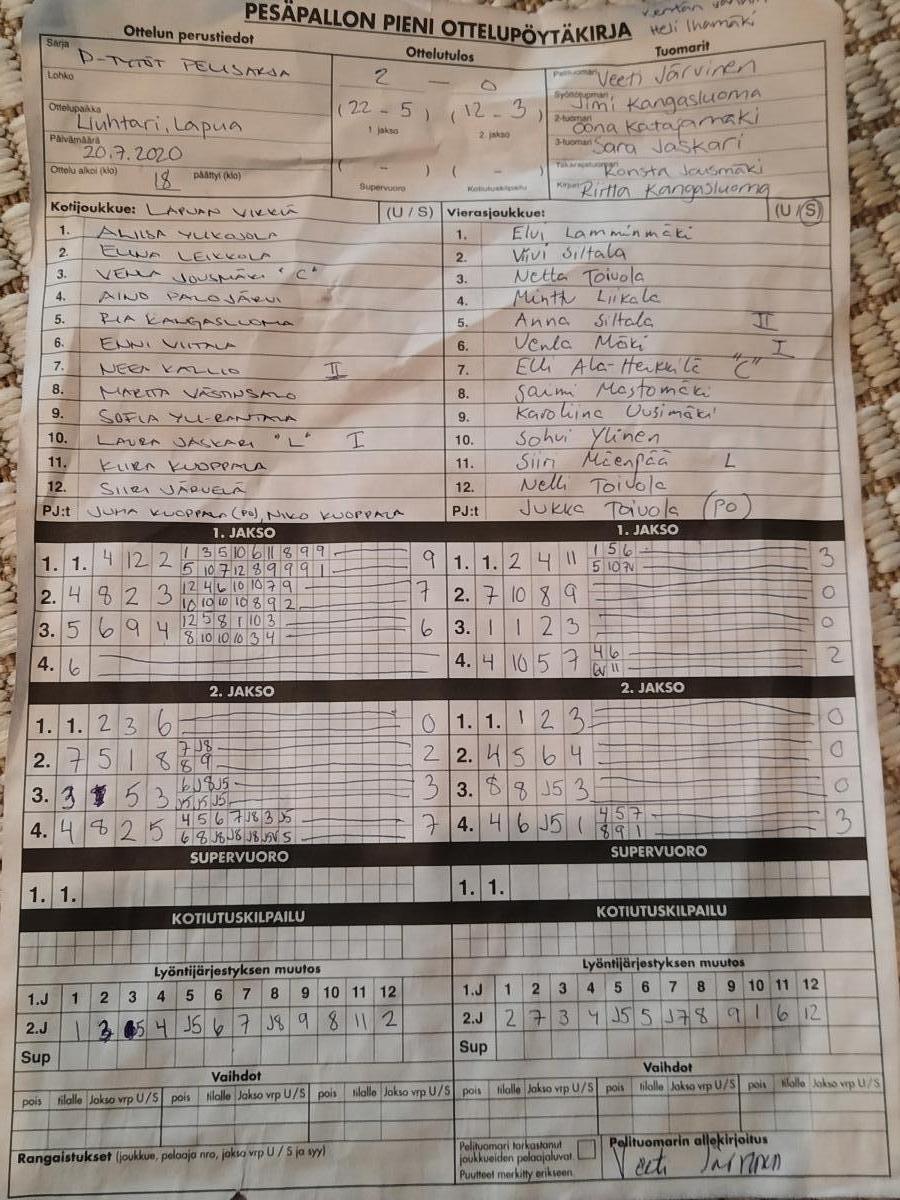 PESÄPALLON PIENI OTTELUPÖYTÄKIRJA
Heli Ihamäki
Ottelun perustiedot
Sarja D-TYTÖT PELISARJA
Lohko
Ottelupaikka Liuhtari, Lapua
Päivämäärä 20.7.2020
Ottelu alkoi (klo) 18 päättyi (klo)
Ottelutulos
2 - 0
(22 - 5) (12 - 3)
1. jakso 2. jakso
( - ) ( - )
Supervuoro Kotiutuskilpailu
Tuomarit
Pelituomari Veeti Järvinen
Syöttötuomari Jimi Kangasluoma
2-tuomari Oona Katajamäki
3-tuomari Sara Jaskari
Takarajatuomari Konsta Jousmäki
Kirjuri Riitta Kangasluoma
Kotijoukkue: LAPUAN VIRKIÄ (U / S)
1. ALIISA YLIKOJOLA
2. ELINA LEIKKOLA
3. VENLA JOUSMÄKI "C"
4. AINO PALOJÄRVI
5. RIA KANGASLUOMA
6. ENNI VIITALA
7. NEEA KALLIO II
8. MARITA VÄSTINSALO
9. SOFIA YLI-RANTALA
10. LAURA JASKARI "L" I
11. KIIRA KUOPPALA
12. SIIRI JÄRVELÄ
PJ:t JUHA KUOPPALA (PO), NIKO KUOPPALA
Vierasjoukkue: (U / S)
1. Elvi Lamminmäki
2. Viivi Siltala
3. Netta Toivola
4. Minttu Liikala
5. Anna Siltala II
6. Venla Mäki I
7. Elli Ala-Herkkilä "C"
8. Saimi Mastomäki
9. Karoliina Uusimäki
10. Sohvi Ylinen
11. Siiri Mäenpää L
12. Nelli Toivola
PJ:t Jukka Toivola (PO)
1. JAKSO
1. 1. 4 12 2 1 3 5 10 6 11 8 9 9 9
5 10 7 12 8 9 9 9 1
2. 4 8 2 3 12 4 6 10 10 7 9 7
10 10 10 10 8 9 2
3. 5 6 9 4 12 5 8 1 10 3 6
8 10 10 10 3 4
4. 6
1. JAKSO
1. 1. 2 4 11 1 5 6 3
5 10
2. 7 10 8 9 0
3. 1 1 2 3 0
4. 4 10 5 7 4 6 2
11
2. JAKSO
1. 1. 2 3 6 0
2. 7 5 1 8 7 J8 2
8 9
3. 3 5 3 6 J8 J5 3
J5 J5 J5
4. 4 8 2 5 4 5 6 7 J8 3 J5 7
6 8 J8 J8 J8 5
2. JAKSO
1. 1. 1 2 3 0
2. 4 5 6 4 0
3. 8 8 J5 3 0
4. 4 6 J5 1 4 5 7 3
8 9 1
SUPERVUORO
1. 1.
SUPERVUORO
1. 1.
KOTIUTUSKILPAILU
KOTIUTUSKILPAILU
Lyöntijärjestyksen muutos
1.J 1 2 3 4 5 6 7 8 9 10 11 12
2.J 1 3 5 4 J5 6 7 J8 9 8 11 2
Sup
Lyöntijärjestyksen muutos
1.J 1 2 3 4 5 6 7 8 9 10 11 12
2.J 2 7 3 4 J5 5 J7 8 9 1 6 12
Sup
Vaihdot
pois tilalle Jakso vrp U/S pois tilalle Jakso vrp U/S pois tilalle Jakso vrp U/S
Vaihdot
pois tilalle Jakso vrp U/S pois tilalle Jakso vrp U/S pois tilalle Jakso vrp U/S
Rangaistukset (joukkue, pelaaja nro, jakso vrp U / S ja syy)
Pelituomari tarkastanut
joukkueiden pelaajaluvat.
Puutteet merkitty erikseen.
Pelituomarin allekirjoitus
Veeti Järvinen